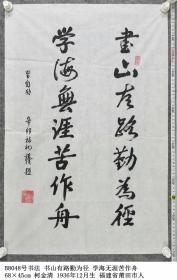 書山有路勤為徑
學海無涯苦作舟
辛卯
B8048号书法 书山有路勤为径 学海无涯苦作舟
68×45cm 柯金清 1936年12月生 福建省莆田市人